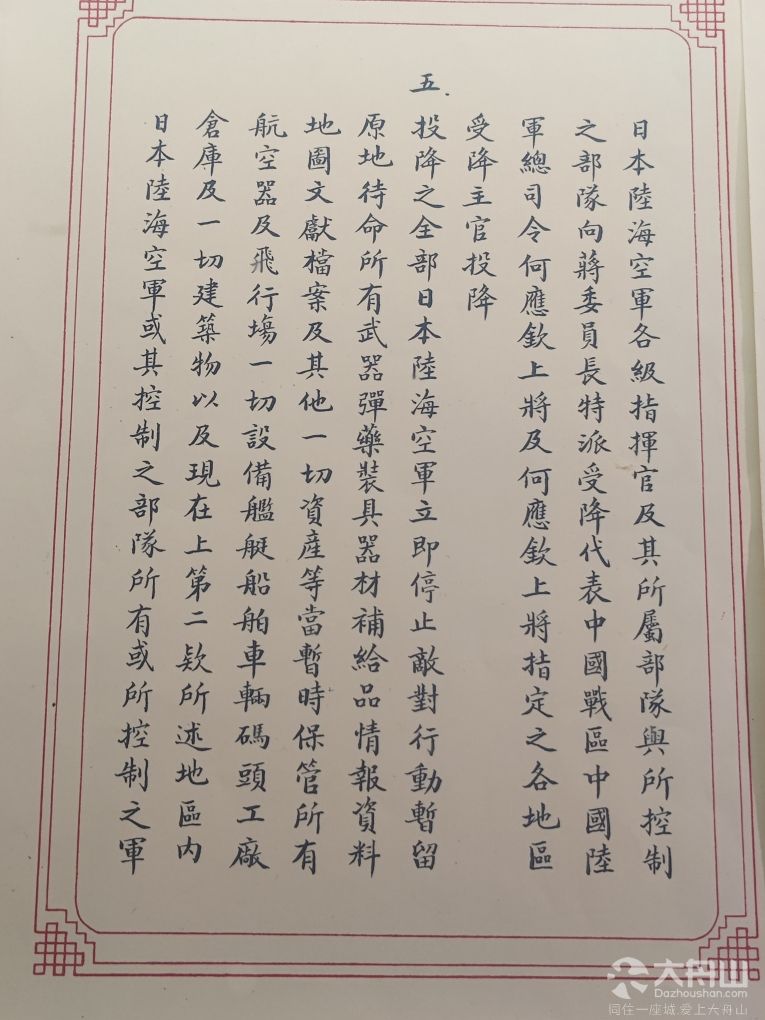 日本陸海空軍各級指揮官及其所屬部隊與所控制
之部隊向蔣委員長特派受降代表中國戰區中國陸
軍總司令何應欽上將及何應欽上將指定之各地區
受降主官投降
五.
投降之全部日本陸海空軍立即停止敵對行動暫留
原地待命所有武器彈藥裝具器材補給品情報資料
地圖文獻檔案及其他一切資產等當暫時保管所有
航空器及飛行場一切設備艦艇船舶車輛碼頭工廠
倉庫及一切建築物以及現在上第二款所述地區內
日本陸海空軍或其控制之部隊所有或所控制之軍
大舟山
Dazhoushan.com
同住一座城,爱上大舟山